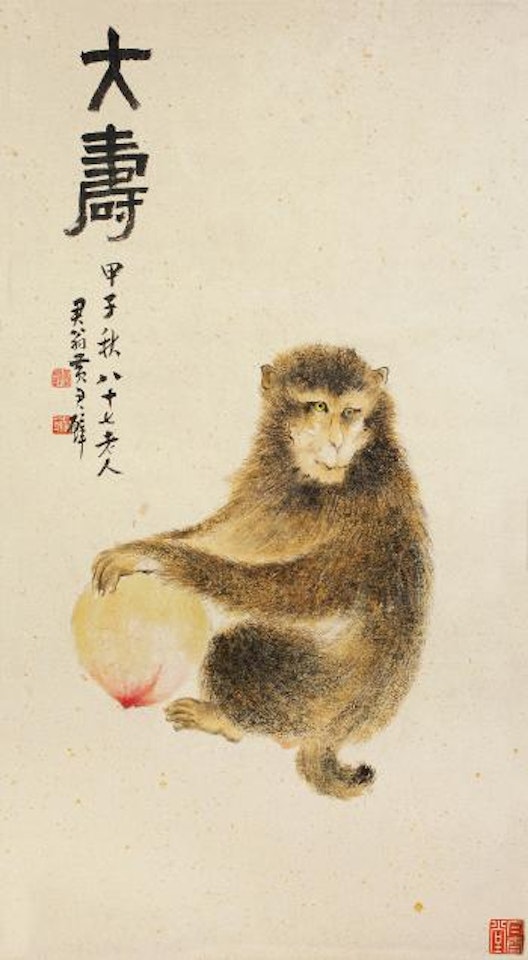 大壽
甲子秋八十七老人
君翁黃君璧